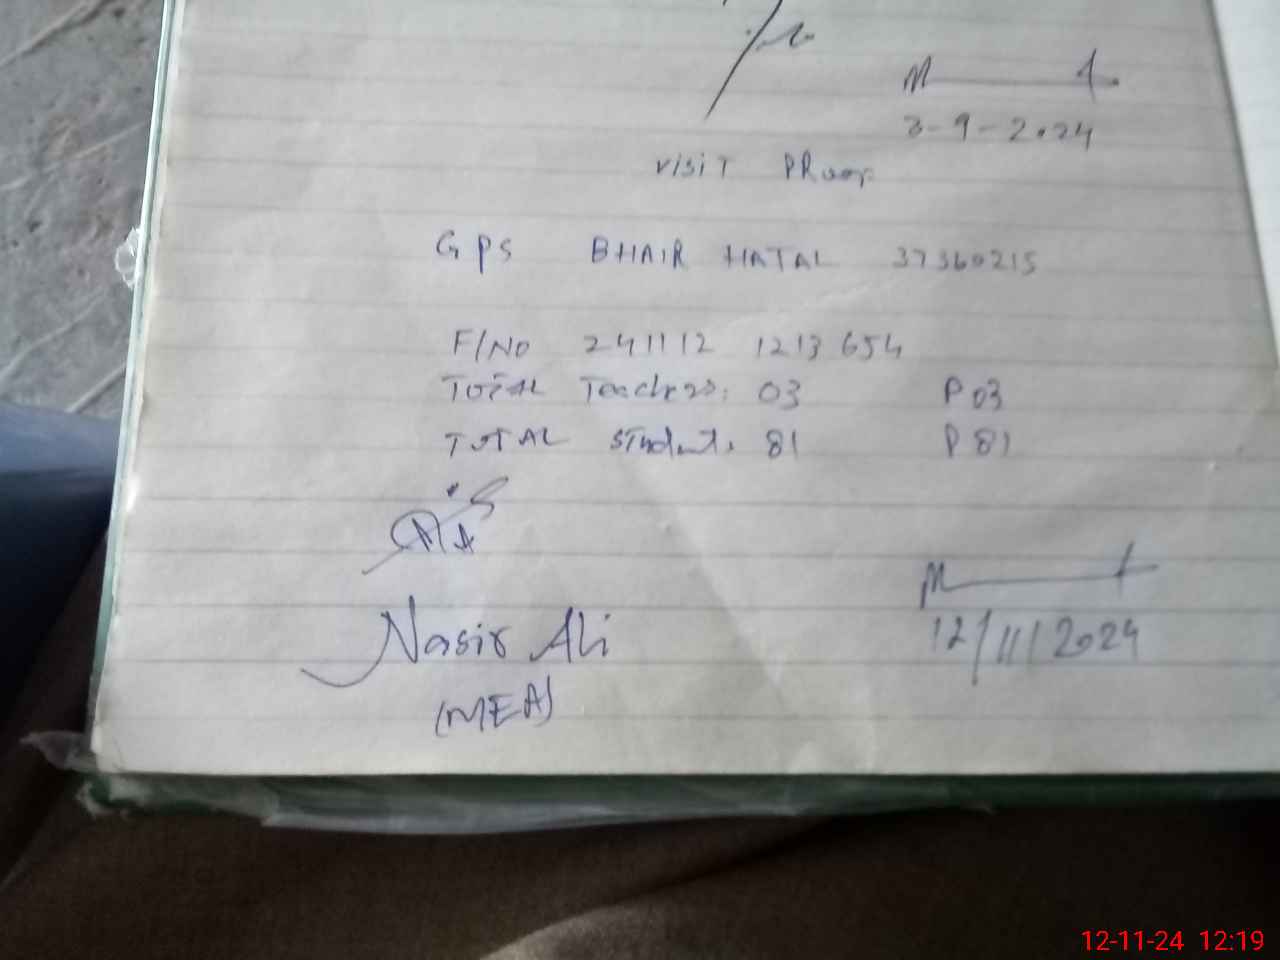 3-9-2024
VISIT PROOF
GPS BHAIR HATAL 37360215
F/NO 241112 1213654
TOTAL Teachers: 03 P 03
TOTAL Students 81 P 81
Nasir Ali
(MEA)
12/11/2024
12-11-24 12:19